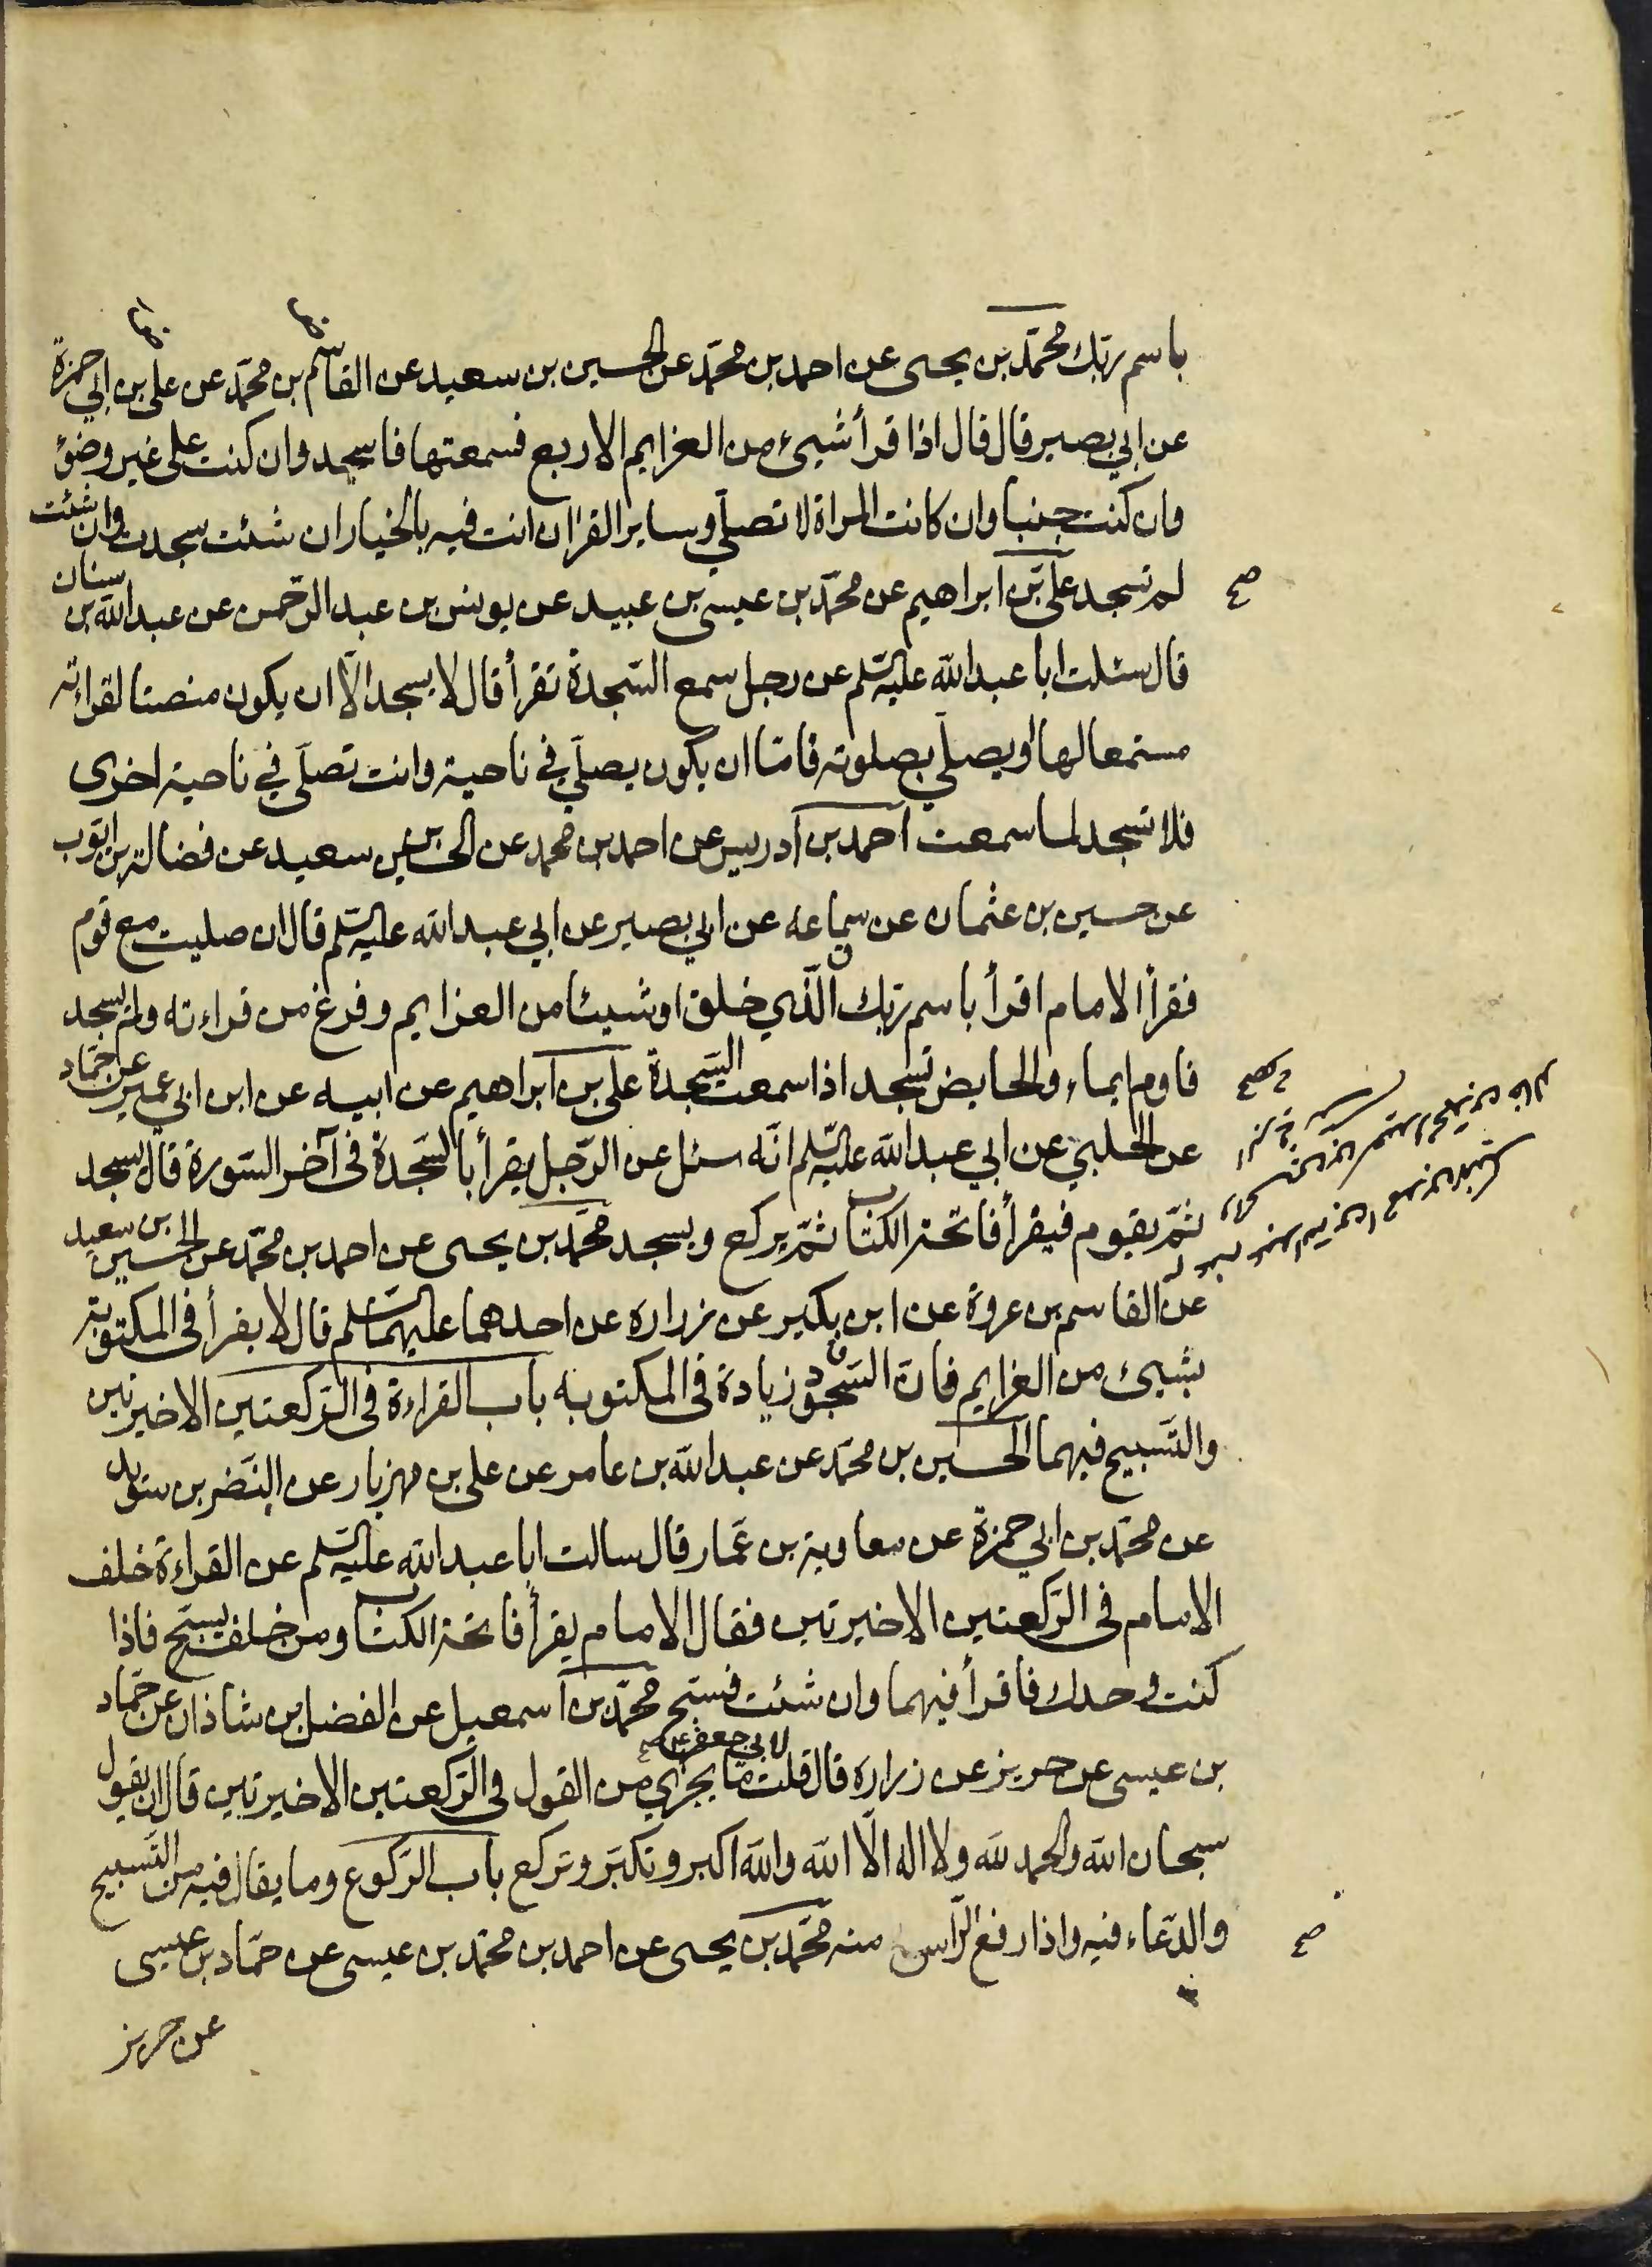 باسم ربّك محمّد بن يحيى عن احمد بن محمّد عن الحسين بن سعيد عن القاسم بن محمّد عن علي بن ابي حمزة
عن ابي بصير قال قال اذا قرأ شيئ من العزايم الاربع فسمعتها فاسجد وان كنت على غير وضؤ
وان كنت جنبا وان كانت المراة لا تصلّي وساير القران انت فيه بالخيار ان شئت سجدت وان شئت
لم تسجد علي بن ابراهيم عن محمّد بن عيسى بن عبيد عن يونس بن عبد الرحمن عن عبد الله بن سنان
قال سئلت ابا عبد الله عليه السّلم عن رجل سمع السّجدة تقرأ قال لا يسجد الّا ان يكون منصتا لقراءته
مستمعا لها او يصلّي بصلوته فامّا ان يكون يصلّي في ناحية وانت تصلّي في ناحية اخرى
فلا تسجد لما سمعت احمد بن ادريس عن احمد بن محمد عن الحسين بن سعيد عن فضالة بن ايّوب
عن حسين بن عثمان عن سماعه عن ابي بصير عن ابي عبد الله عليه السّلم قال ان صليت مع قوم
فقرأ الامام اقرأ باسم ربّك الّذي خلق او شيئا من العزايم وفرغ من قراءته ولم يسجد
فاوم ايماء والحايض تسجد اذا سمعت السّجدة علي بن ابراهيم عن ابيه عن ابن ابي عمير عن حمّاد
عن الحلبي عن ابي عبد الله عليه السّلم انّه سئل عن الرّجل يقرأ بالسّجدة فى آخر السّورة قال يسجد
ثمّ يقوم فيقرأ فاتحة الكتاب ثمّ يركع ويسجد محمّد بن يحيى عن احمد بن محمّد عن الحسين بن سعيد
عن القاسم بن عروة عن ابن بكير عن زراره عن احدهما عليهما السّلم قال لا يقرأ فى المكتوبة
بشيئ من العزايم فانّ السّجود زيادة فى المكتوبه باب القراءة فى الرّكعتين الاخيرتين
والتّسبيح فيهما الحسين بن محمّد عن عبد الله بن عامر عن علي بن مهزيار عن النّضر بن سويد
عن محمّد بن ابي حمزة عن معاوية بن عمّار قال سالت ابا عبد الله عليه السّلم عن القراءة خلف
الامام فى الرّكعتين الاخيرتين فقال الامام يقرأ فاتحة الكتاب ومن خلفه يسبّح فاذا
كنت وحدك فاقرأ فيهما وان شئت فسبّح محمّد بن اسمعيل عن الفضل بن شاذان عن حمّاد
بن عيسى عن حريز عن زراره قال قلت لابي جعفر ما يجزي من القول فى الرّكعتين الاخيرتين قال ان يقول
سبحان الله والحمد لله ولا اله الّا الله والله اكبر وتكبّر وتركع باب الرّكوع وما يقال فيه من التّسبيح
والدّعاء فيه واذا رفع الرّاس منه محمّد بن يحيى عن احمد بن محمّد بن عيسى عن حمّاد بن عيسى
عن حريز
صح
صح